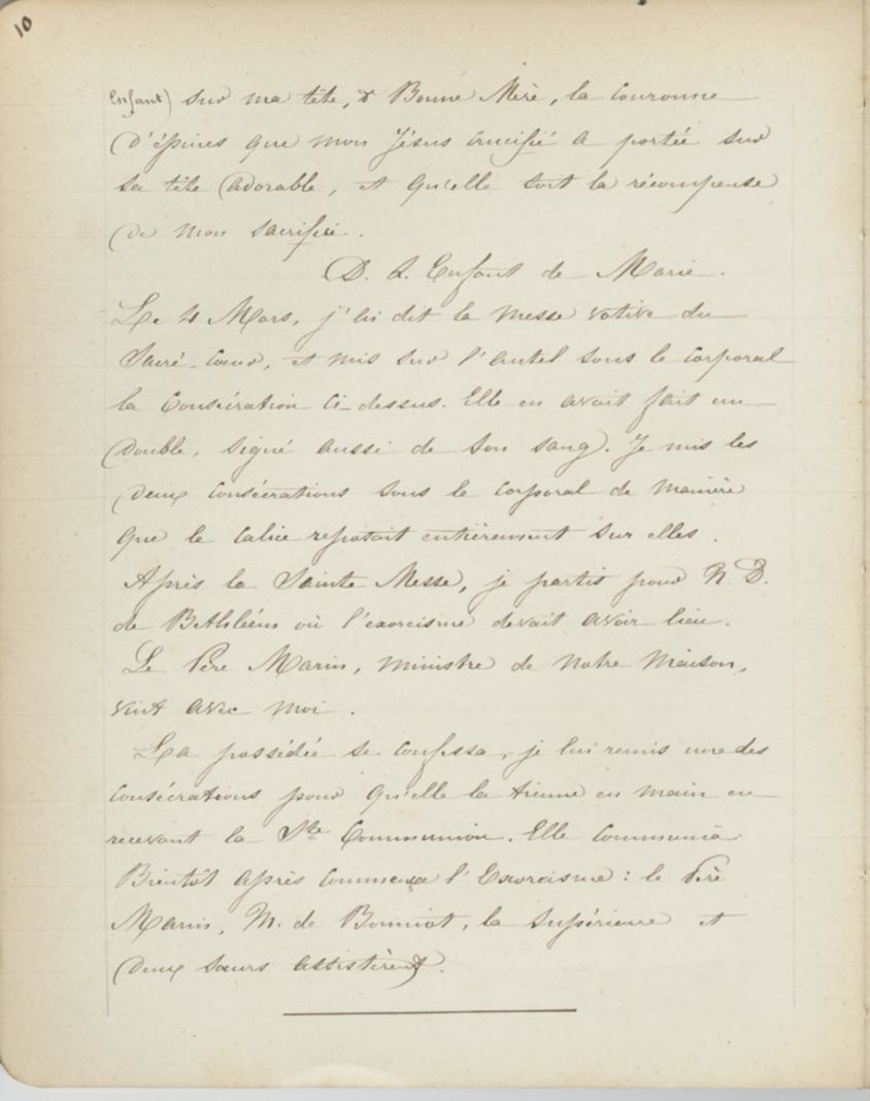 10
Enfant) sur ma tête, ô Bonne Mère, la couronne
d'épines que mon Jésus crucifié a portée sur
sa tête adorable, et qu'elle soit la récompense
de mon sacrifice.
D. L. Enfant de Marie.
Le 4 Mars, j'ai dit la messe votive du
Sacré-Coeur, et mis sur l'autel sous le corporal
la Consécration ci-dessus. Elle en avait fait un
double, signé aussi de son sang). Je mis les
deux consécrations sous le corporal de manière
que le calice reposait entièrement sur elles.
Après la Sainte Messe, je partis pour N. D.
de Bethléem où l'exorcisme devait avoir lieu.
Le Père Marin, ministre de notre maison,
vint avec moi.
La possédée se confessa, je lui remis une des
consécrations pour qu'elle la tienne en main en
recevant la Ste Communion. Elle communia
Bientôt après commença l'Exorcisme : le Père
Marin, M. de Bonniot, la Supérieure et
deux soeurs assistèrent.